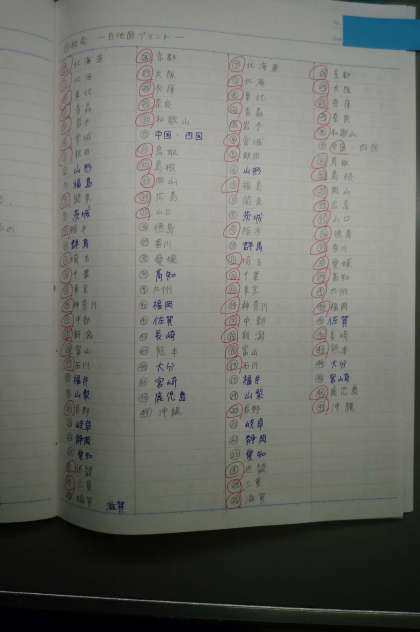 北海道
北海
東北
青森
岩手
宮城
秋田
山形
福島
関東
茨城
栃木
群馬
埼玉
千葉
東京
神奈川
中部
新潟
富山
石川
福井
山梨
長野
岐阜
静岡
愛知
近畿
三重
滋賀
京都
大阪
兵庫
奈良
和歌山
中国・四国
鳥取
島根
岡山
広島
山口
徳島
香川
愛媛
高知
九州
福岡
佐賀
長崎
熊本
大分
宮崎
鹿児島
沖縄
北海道
北海
東北
青森
岩手
宮城
秋田
山形
福島
関東
茨城
栃木
群馬
埼玉
千葉
東京
神奈川
中部
新潟
富山
石川
福井
山梨
長野
岐阜
静岡
愛知
近畿
三重
滋賀
京都
大阪
兵庫
奈良
和歌山
中国・四国
鳥取
島根
岡山
広島
山口
徳島
香川
愛媛
高知
九州
福岡
佐賀
長崎
熊本
大分
宮崎
鹿児島
沖縄